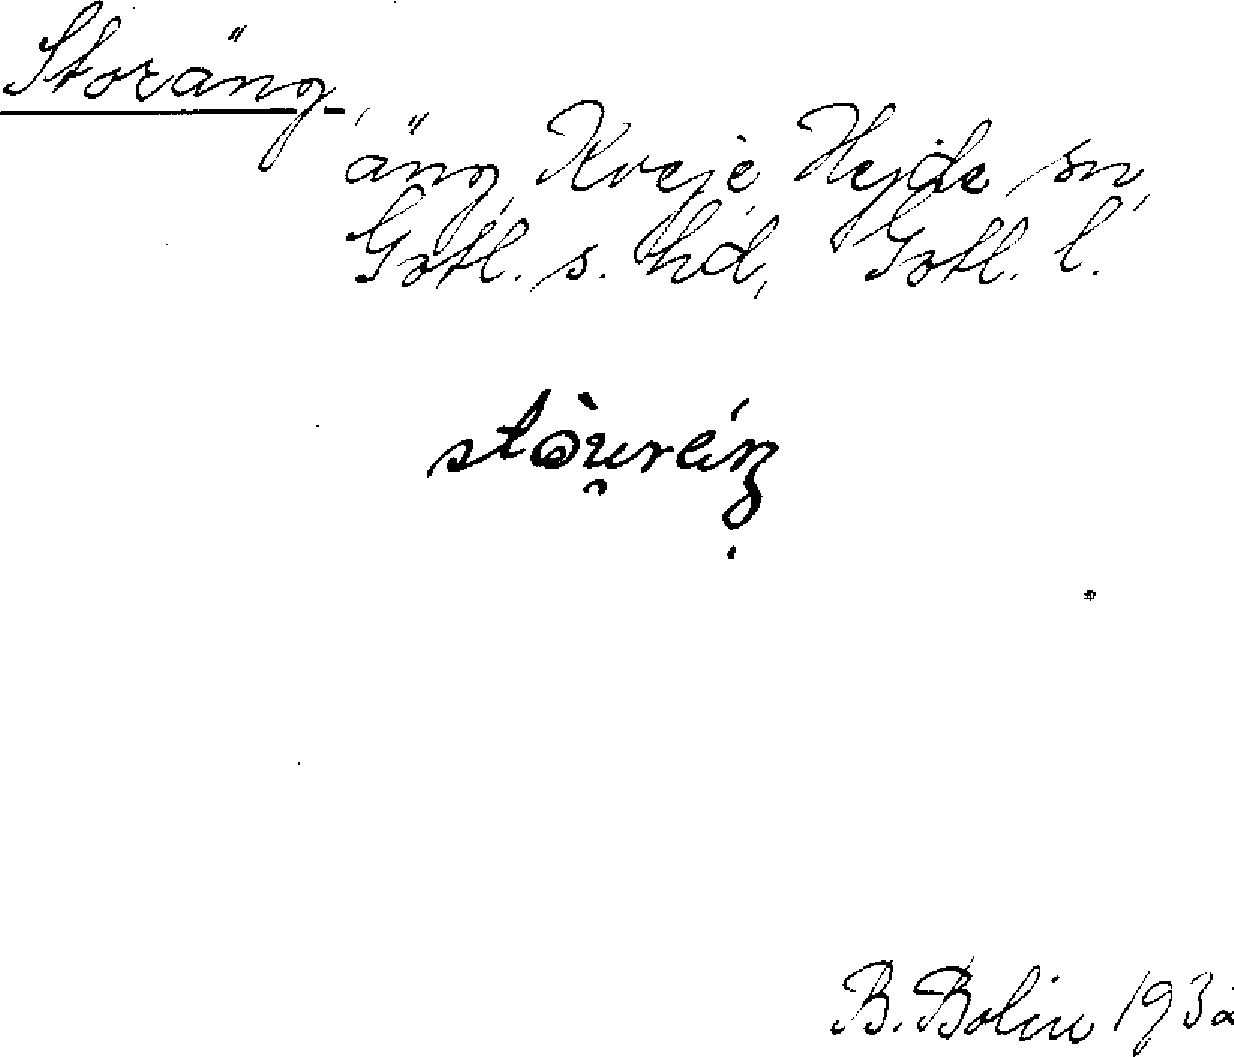 Storäng,
äng, Kveje, Hejde sn,
Gotl. s. hd, Gotl. l.
B. Bolin 1932